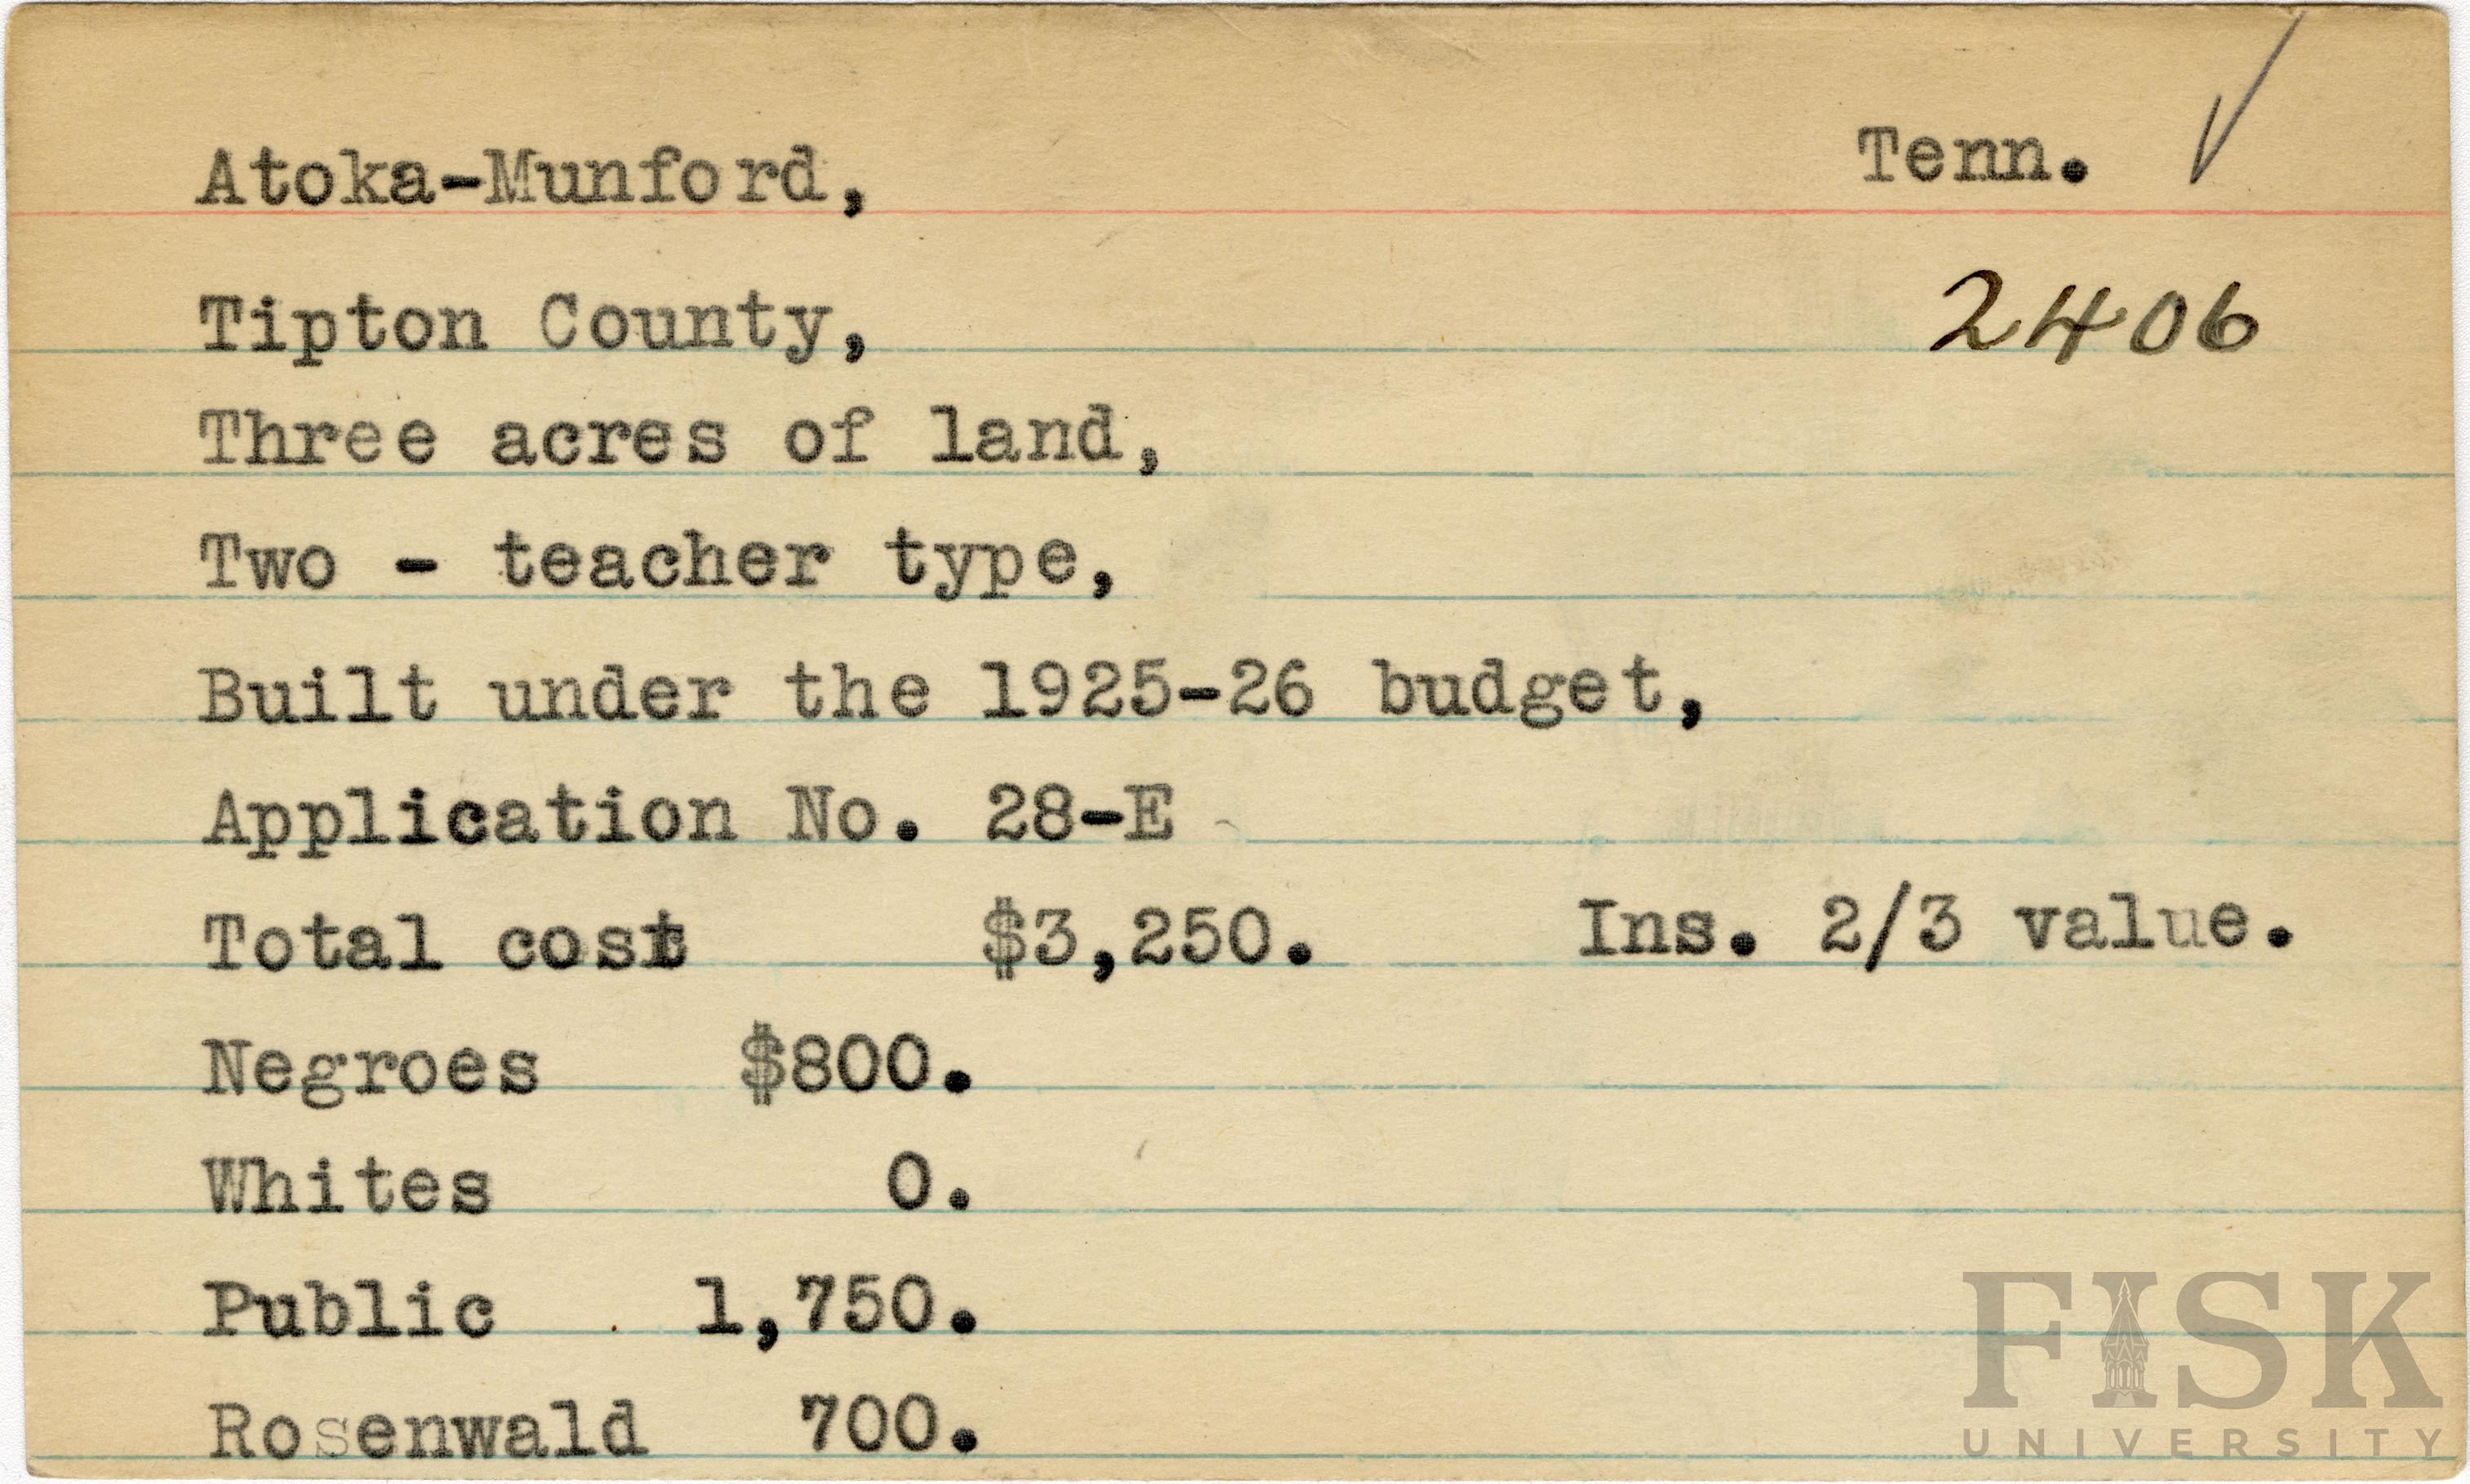 Atoka-Munford, Tenn. ✓
Tipton County, 2406
Three acres of land,
Two - teacher type,
Built under the 1925-26 budget,
Application No. 28-E
Total cost $3,250. Ins. 2/3 value.
Negroes $800.
Whites 0.
Public 1,750.
Rosenwald 700.
FISK
UNIVERSITY